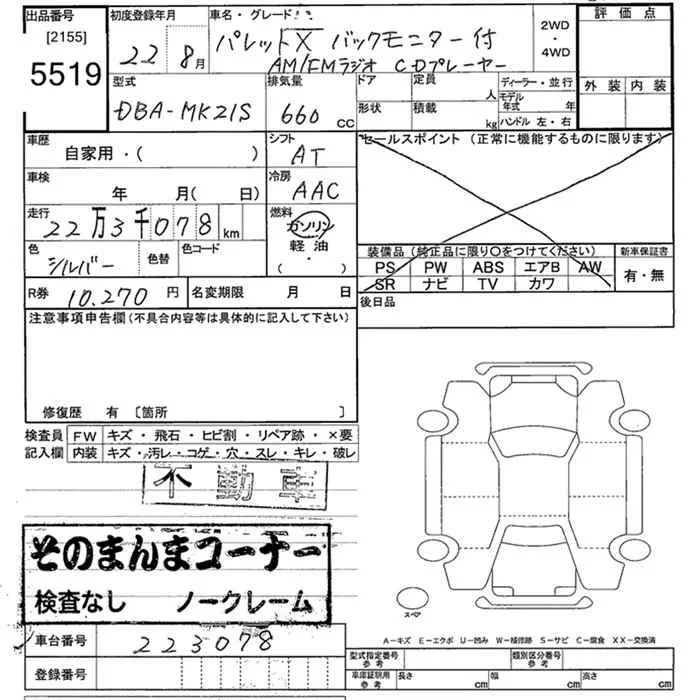 出品番号
[2155]
5519
初度登録年月
22 8月
車名・グレード
パレット X バックモニター付
AM/FMラジオ CDプレーヤー
2WD
・
4WD
評価点
外装 内装
型式
DBA-MK21S
排気量
660 CC
ドア
形状
定員
人
積載
kg
ディーラー・並行
モデル
年式 年
ハンドル 左・右
車歴
自家用・( )
シフト
AT
セールスポイント (正常に機能するものに限ります)
車検
年 月( 日)
冷房
AAC
走行
22万3千078 km
燃料
ガソリン
軽油
( ・ )
色
シルバー
色替
色コード
装備品 (純正品に限り○をつけてください)
新車保証書
PS PW ABS エアB AW
SR ナビ TV カワ
有・無
R券 10,270 円
名変期限 月 日
後日品
注意事項申告欄(不具合内容等は具体的に記入して下さい)
修復歴 有 〔箇所 〕
検査員
記入欄
FW キズ・飛石・ヒビ割・リペア跡・×要
内装 キズ・汚レ・コゲ・穴・スレ・キレ・破レ
不動車
そのまんまコーナー
検査なし ノークレーム
スペア
A-キズ E-エクボ U-凹み W-補修跡 S-サビ C-腐食 XX-交換済
車台番号 223078
登録番号
型式指定番号
参考
類別区分番号
参考
車庫証明用
参考
長さ cm 幅 cm 高さ cm